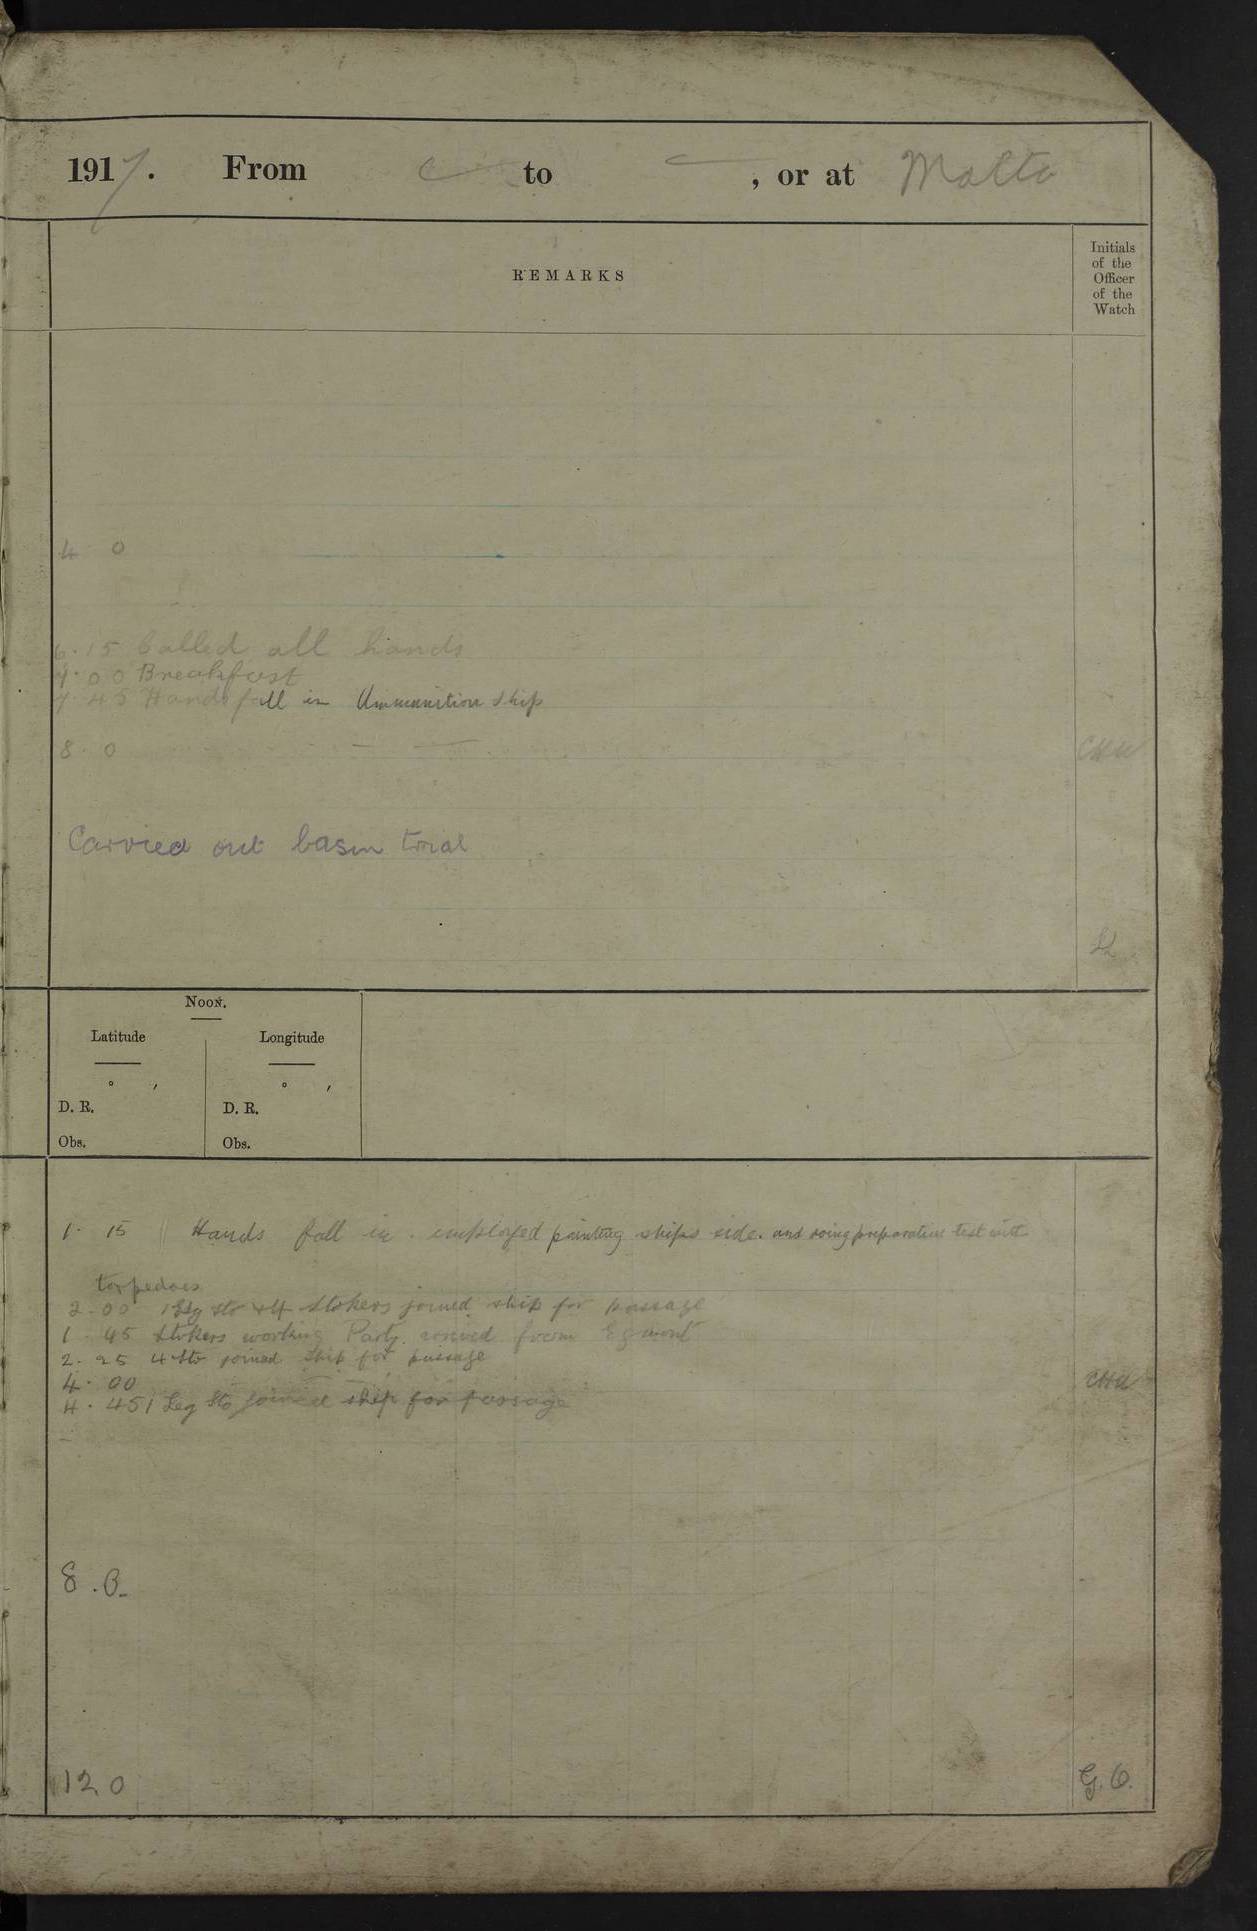 1917. From — to — , or at Malta
REMARKS
Initials
of the
Officer
of the
Watch
4 0
6.15 Called all hands
7.00 Breakfast
7.45 Hands fall in Ammunition ship
8.0
Carried out basin trial
Noon.
Latitude Longitude
° ′ ° ′
D. R. D. R.
Obs. Obs.
1.15 Hands fall in. employed painting ships side. and doing preparation test with
torpedoes
2.00 1 Ldg Sto & 4 Stokers joined ship for passage
1.45 Stokers working Party. arrived from Egmont
2.25 4 Sto joined ship for passage
4.00
4.45 1 Leg Sto joined ship for passage
8.0
12 0 G.O.